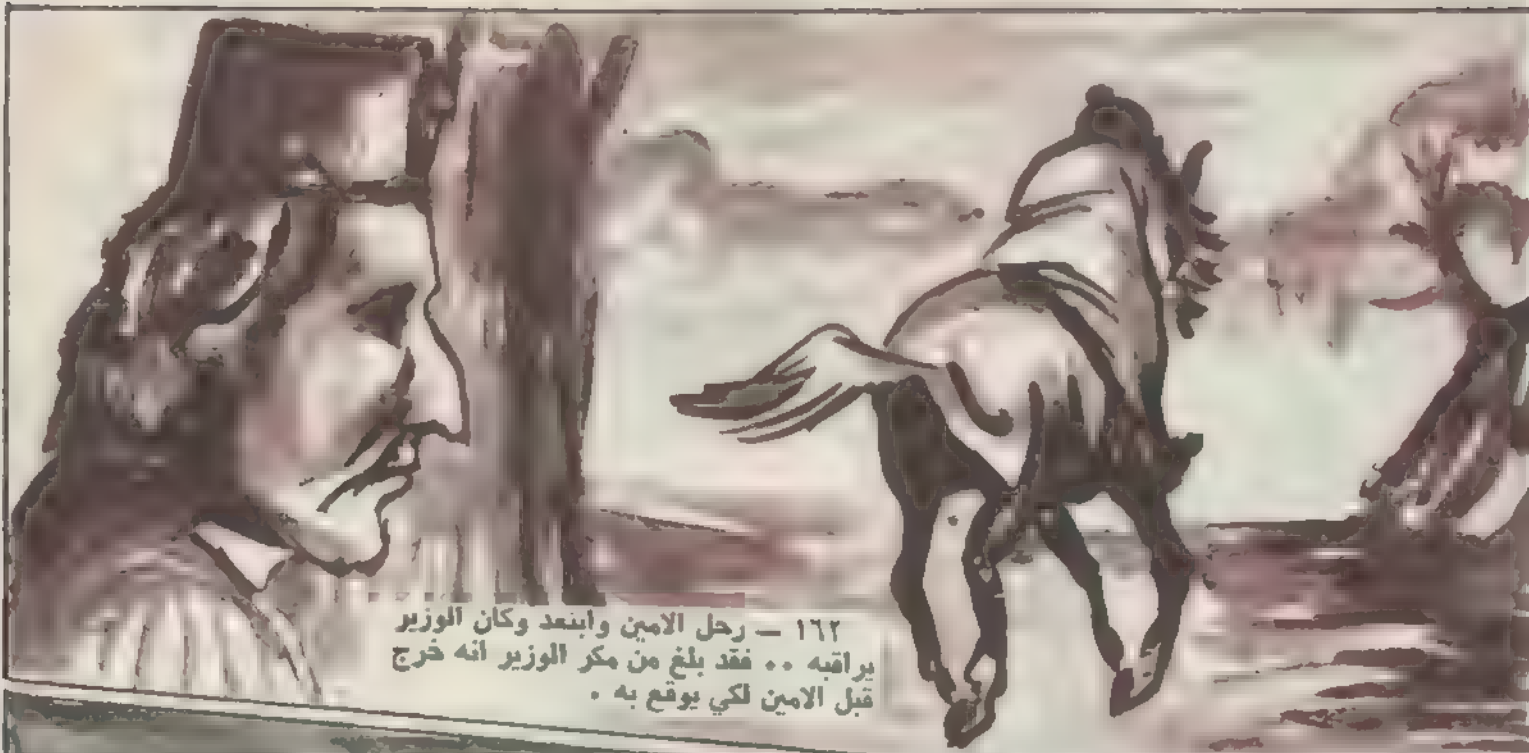 ١٦٢ — رحل الامين وابتعد وكان الوزير
يراقبه ٠٠ فقد بلغ من مكر الوزير انه خرج
قبل الامين لكي يوقع به ٠